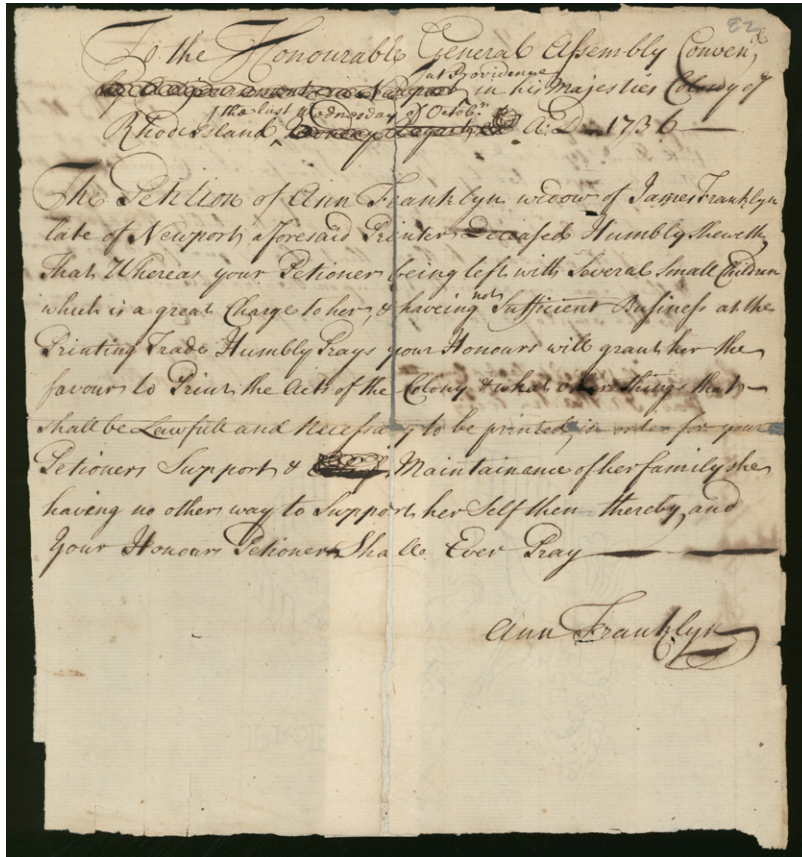 82
To the Honourable General Assembly Conven'd
by Adjournment at Newport at Providence in his Majesties Colony of
Rhode Island the last Wednesday of Octobr A: D— 1736—
The Petition of Ann Franklyn widow of James Franklyn
late of Newport aforesaid Printer Deceased Humbly sheweth,
That Whereas your Petioner being left with Several Small Children
which is a great Charge to her, & having not Sufficient Business at the
Printing Trade Humbly Prays your Honours will grant her the
favour to Print the Acts of the Colony & what other things that—
shall be Lawfull and necessary to be printed, in order for your
Petioners Support & Maintainance of her family she
having no other way to Support her Self then thereby, and
Your Honours Petioner Shall Ever Pray — — —
Ann Franklyn